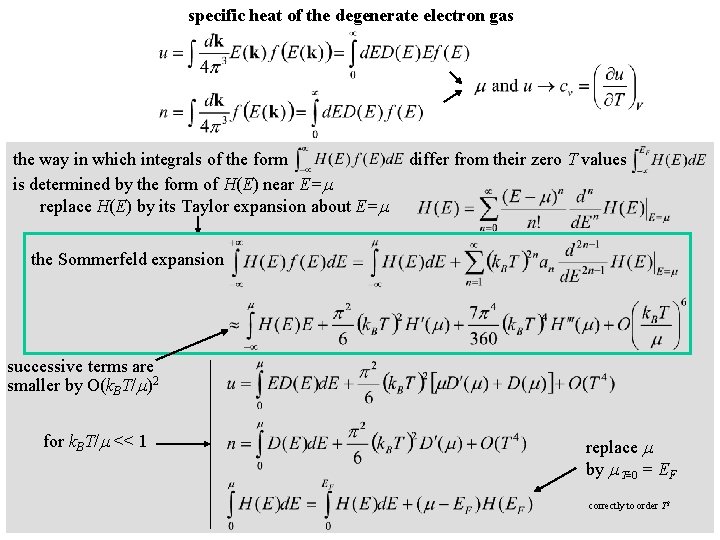 specific heat of the degenerate electron gas
u = ∫ dk/4π³ E(k) f(E(k)) = ∫₀^∞ dED(E)Ef(E)
μ and u → c_v = (∂u/∂T)_V
n = ∫ dk/4π³ f(E(k)) = ∫₀^∞ dED(E)f(E)
the way in which integrals of the form ∫_{-∞}^{+∞} H(E)f(E)dE differ from their zero T values ∫_{-∞}^{E_F} H(E)dE
is determined by the form of H(E) near E=μ
replace H(E) by its Taylor expansion about E=μ
H(E) = ∑_{n=0}^{∞} (E − μ)^n/n! d^n/dE^n H(E)|_{E=μ}
the Sommerfeld expansion
∫_{-∞}^{+∞} H(E)f(E)dE = ∫_{-∞}^{μ} H(E)dE + ∑_{n=1}^{∞} (k_BT)^{2n} a_n d^{2n−1}/dE^{2n−1} H(E)|_{E=μ}
≈ ∫_{-∞}^{μ} H(E)E + π²/6 (k_BT)² H′(μ) + 7π⁴/360 (k_BT)⁴ H‴(μ) + O(k_BT/μ)⁶
successive terms are
smaller by O(k_BT/μ)²
u = ∫₀^μ ED(E)dE + π²/6 (k_BT)² [μD′(μ) + D(μ)] + O(T⁴)
for k_BT/μ << 1
n = ∫₀^μ D(E)dE + π²/6 (k_BT)² D′(μ) + O(T⁴)
replace μ
by μ_{T=0} = E_F
∫₀^μ H(E)dE = ∫₀^{E_F} H(E)dE + (μ − E_F)H(E_F)
correctly to order T²